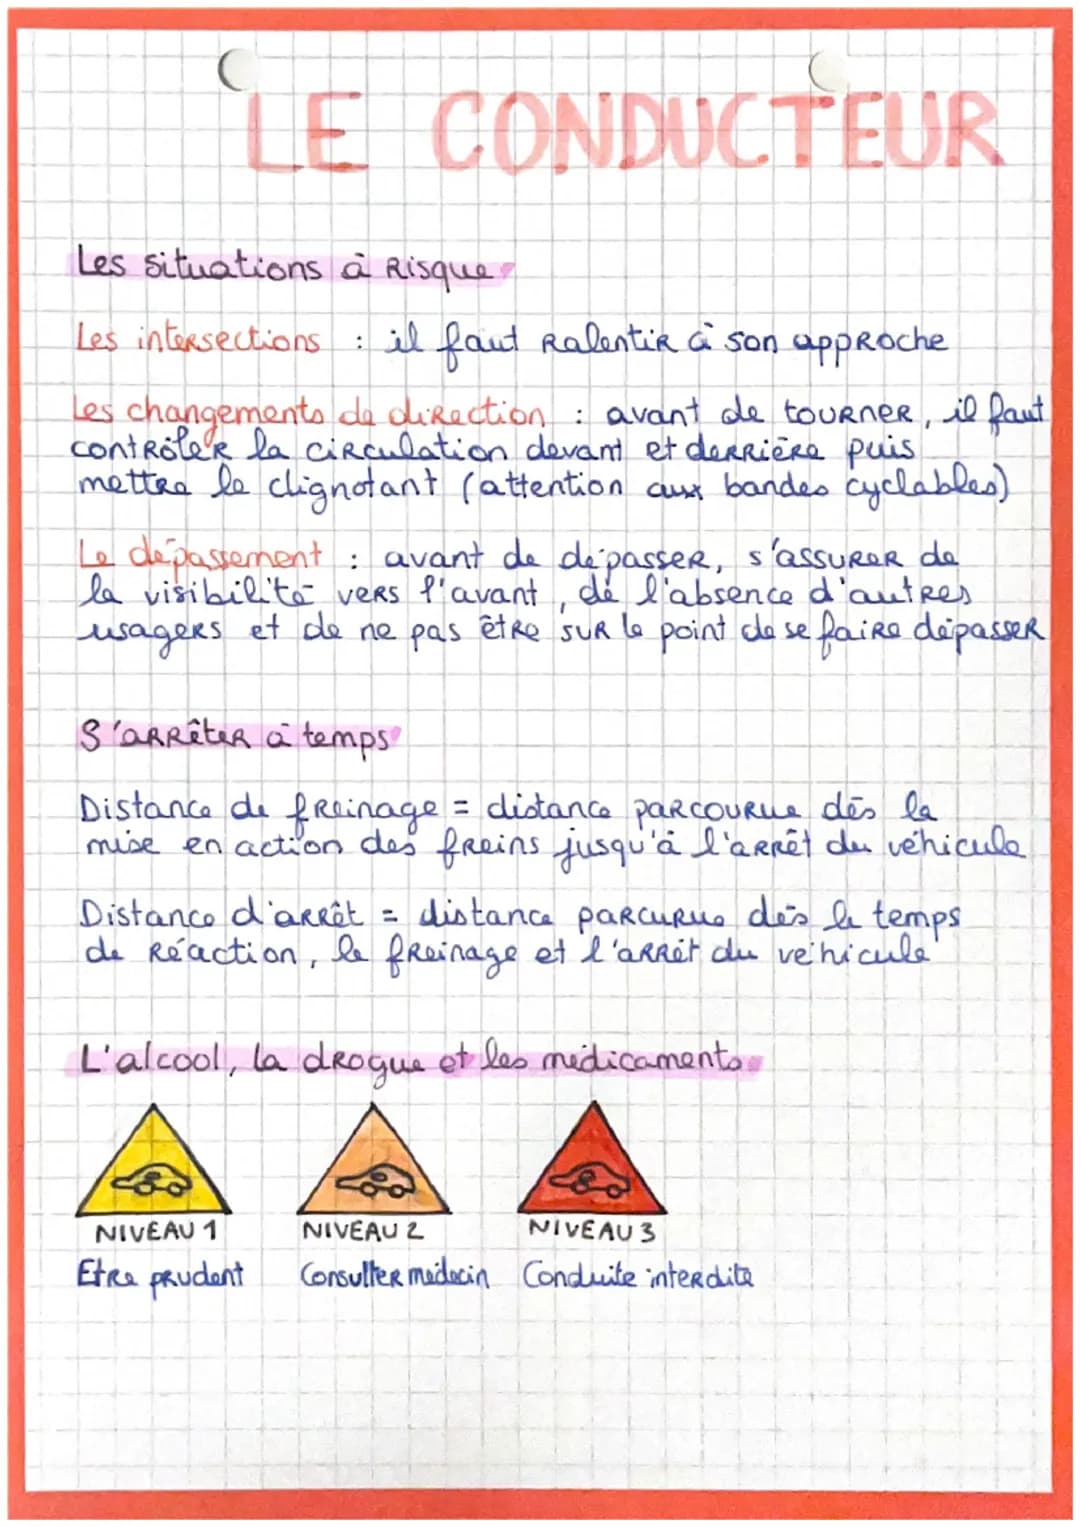 LE CONDUCTEUR
Les situations à Risque
Les intersections : il faut Ralentir à son approche
Les changements de direction : avant de tourner, il faut
contrôler la circulation devant et derrière puis
mettre le clignotant (attention aux bandes cyclables)
Le dépassement : avant de dépasser, s'assurer de
la visibilité vers l'avant, de l'absence d'autres
usagers et de ne pas être sur le point de se faire dépasser
S'arrêter à temps
Distance de freinage = distance parcourue dès la
mise en action des freins jusqu'à l'arrêt du véhicule
Distance d'arrêt = distance parcurue dès le temps
de Réaction, le freinage et l'arrêt du véhicule
L'alcool, la drogue et les médicaments
NIVEAU 1 NIVEAU 2 NIVEAU 3
Etre prudent Consulter medecin Conduite interdite